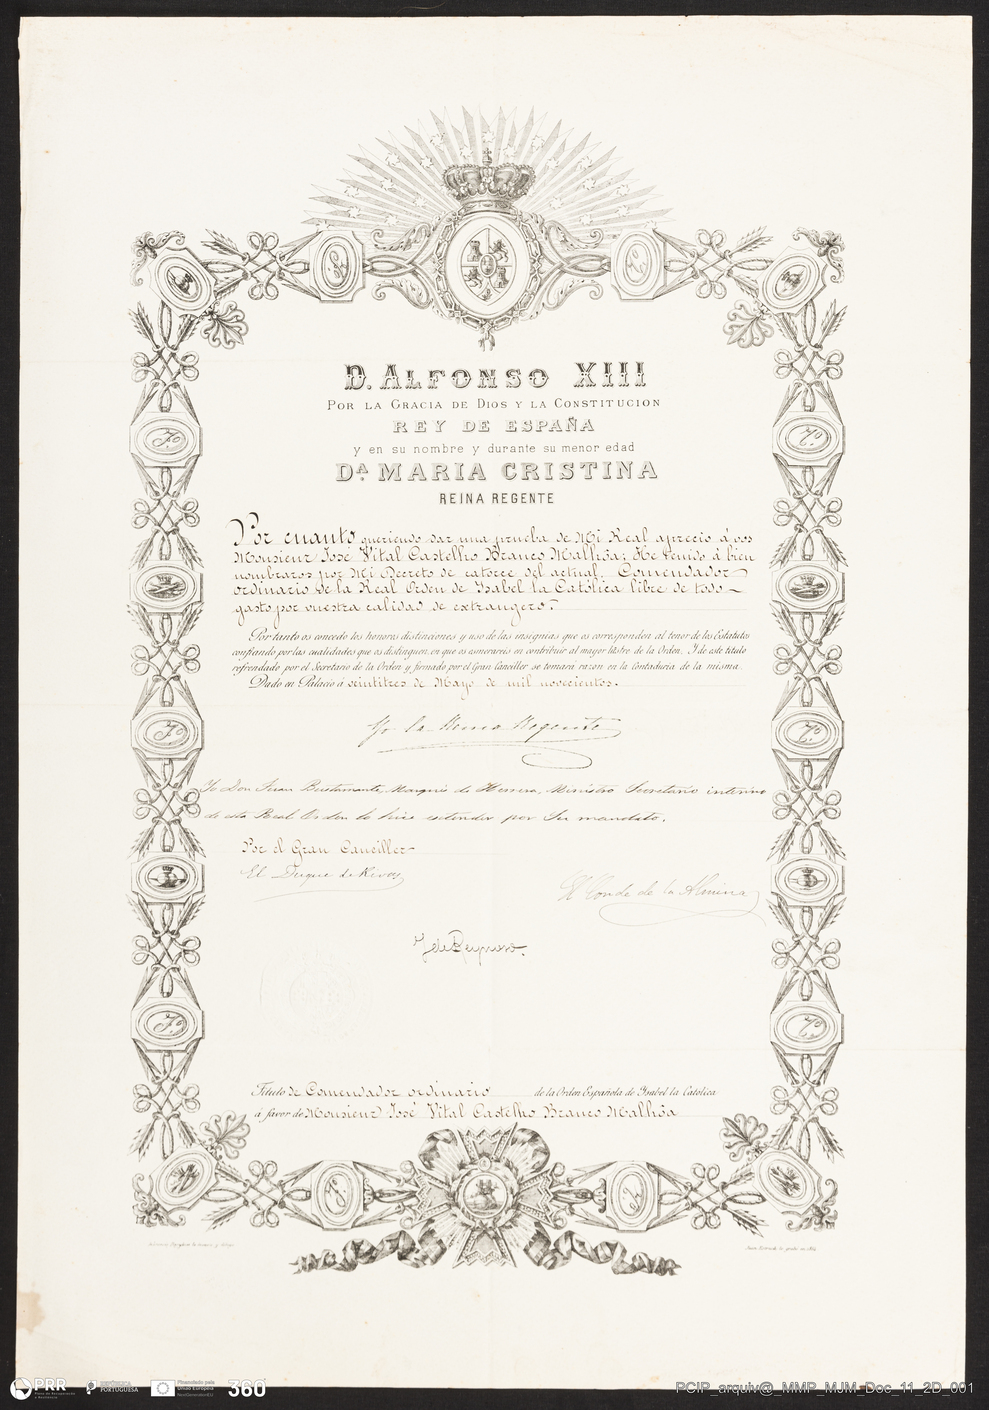 D. ALFONSO XIII
POR LA GRACIA DE DIOS Y LA CONSTITUCION
REY DE ESPAÑA
y en su nombre y durante su menor edad
D.ª MARIA CRISTINA
REINA REGENTE
Por cuanto queriendo dar una prueba de Mi Real aprecio á vos
Monsieur José Vital Castelho Branco Malhôa; He tenido á bien
nombraros por Mi Decreto de catorce del actual, Comendador
ordinario de la Real Orden de Ysabel la Católica libre de todo
gasto por vuestra calidad de extrangero.
Por tanto os concedo los honores distinciones y uso de las insignias que os corresponden al tenor de los Estatutos
confiando por las cualidades que os distinguen, en que os esmerareis en contribuir al mayor lustre de la Orden. Y de este título
refrendado por el Secretario de la Orden y firmado por el Gran Canciller se tomará razon en la Contaduria de la misma.
Dado en Palacio á veintitres de Mayo de mil novecientos.
Yo la Reina Regente
Yo Don Juan Bustamante, Marqués de Herrera, Ministro Secretario interino
de esta Real Orden lo hice extender por Su mandato.
Por el Gran Canciller
El Duque de
El Conde de la Almina
J. de Reynoso.
Título de Comendador ordinario de la Orden Española de Ysabel la Católica
á favor de Monsieur José Vital Castelho Branco Malhôa
PRR
REPÚBLICA PORTUGUESA
Financiado pela União Europeia
NextGenerationEU
360
PCIP_arquiv@_MMP_MJM_Doc_11_2D_001